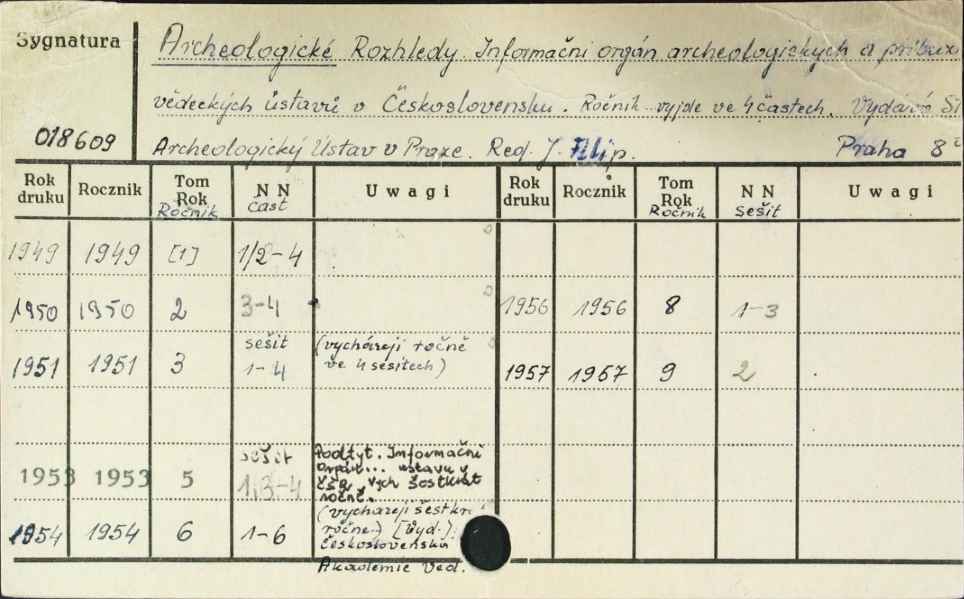 Sygnatura
Archeologické Rozhledy Informačni orgán archeologickych a
vědeckých ústavů v Československu. Ročnik vyjde ve 4 častech. Vydává
018609
Archeologický Ústav v Praze. Red. J. Filip. Praha 8
Rok druku Rocznik Tom Rok Ročnik N N čast Uwagi Rok druku Rocznik Tom Rok Ročnik N N sešit Uwagi
1949 1949 [1] 1/2-4
1950 1950 2 3-4 1956 1956 8 1-3
sešit (vycházejí ročně
1951 1951 3 1-4 ve 4 sesitech) 1957 1957 9 2
sešit Podtyt. Informačni
orgán... ustavu v
1953 1953 5 1,3-4 ČSR. vych šostkrat
ročně.
(vycházejí šestkrát
1954 1954 6 1-6 ročne) [Vyd.].
Československá
Akademie Věd.